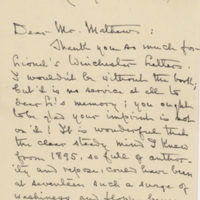 Dear Mr. Mathews:
Thank you so much for
Lionel's Winchester Letters.
I wouldn't be without the book,
but it is no service at all to
dear Li's memory; you ought
to be glad your imprint is not
on it! It is wonderful that
the clear steady mind I knew
from 1895, so full of author-
ity and repose, could have been
at seventeen such a surge of